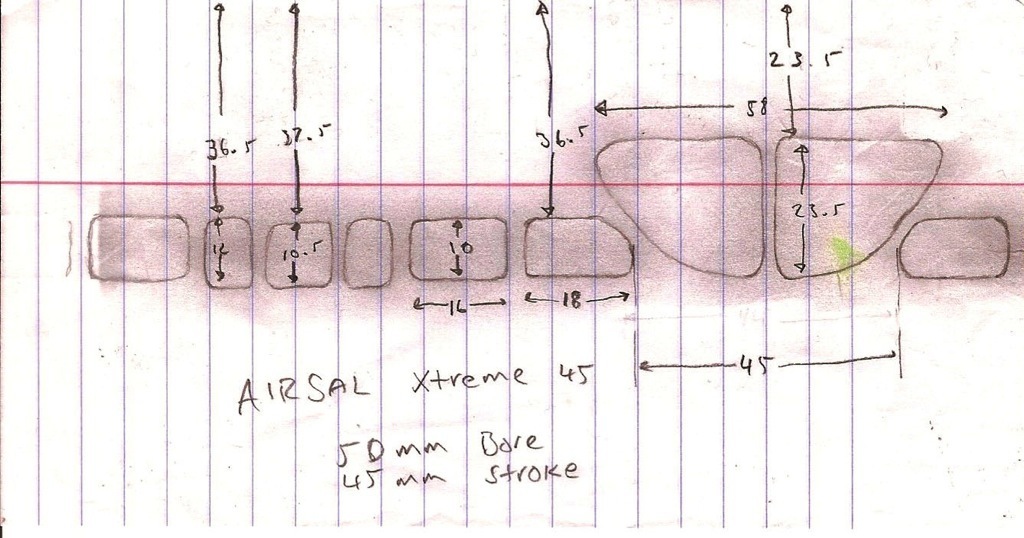 23.5
58
36.5
37.5
36.5
23.5
10.5
10
18
45
AIRSAL Xtreme 45
50mm Bore
45mm Stroke